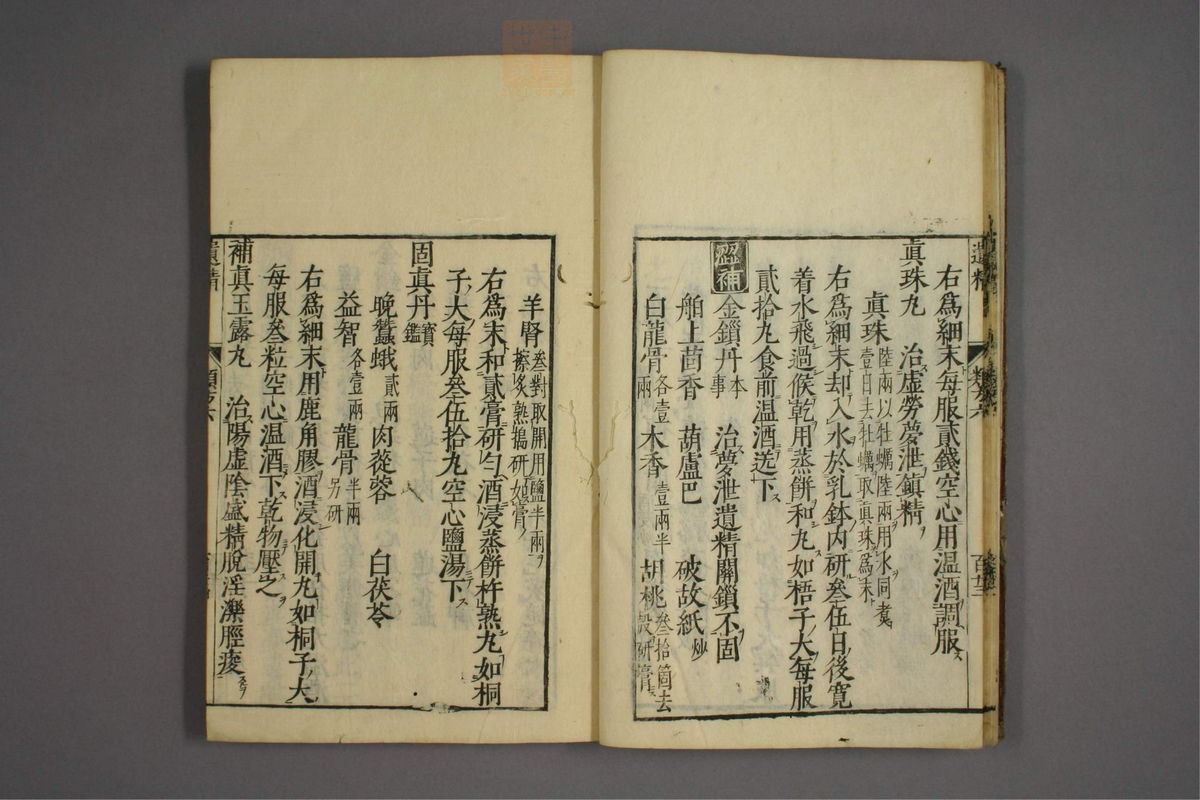 遺精
右爲細末每服貳錢空心用溫酒調服
眞珠丸 治虛勞夢泄鎮精
眞珠 陸兩以牡蠣陸兩用水同煮壹日去牡蠣取眞珠爲末
右爲細末却入水於乳鉢內研叁伍日後寬
着水飛過候乾用蒸餅和丸如梧子大每服
貳拾丸食前溫酒送下
澀補 金鎖丹 本事 治夢泄遺精關鎖不固
舶上茴香 葫蘆巴 破故紙 炒
白龍骨 各壹兩 木香 壹兩半 胡桃 叁拾箇去殼研膏
羊腎 叁對取開用鹽半兩擦炙熟搗研如膏
右爲末和貳膏研勻酒浸蒸餅杵熟丸如桐
子大每服叁伍拾丸空心鹽湯下
固眞丹 寶鑑
晚蠶蛾 貳兩 肉蓯蓉 白茯苓
益智 各壹兩 龍骨 半兩另研
右爲細末用鹿角膠酒浸化開丸如桐子大
每服叁粒空心溫酒下乾物壓之
補眞玉露丸 治陽虛陰盛精脫淫濼脛痠
遺精